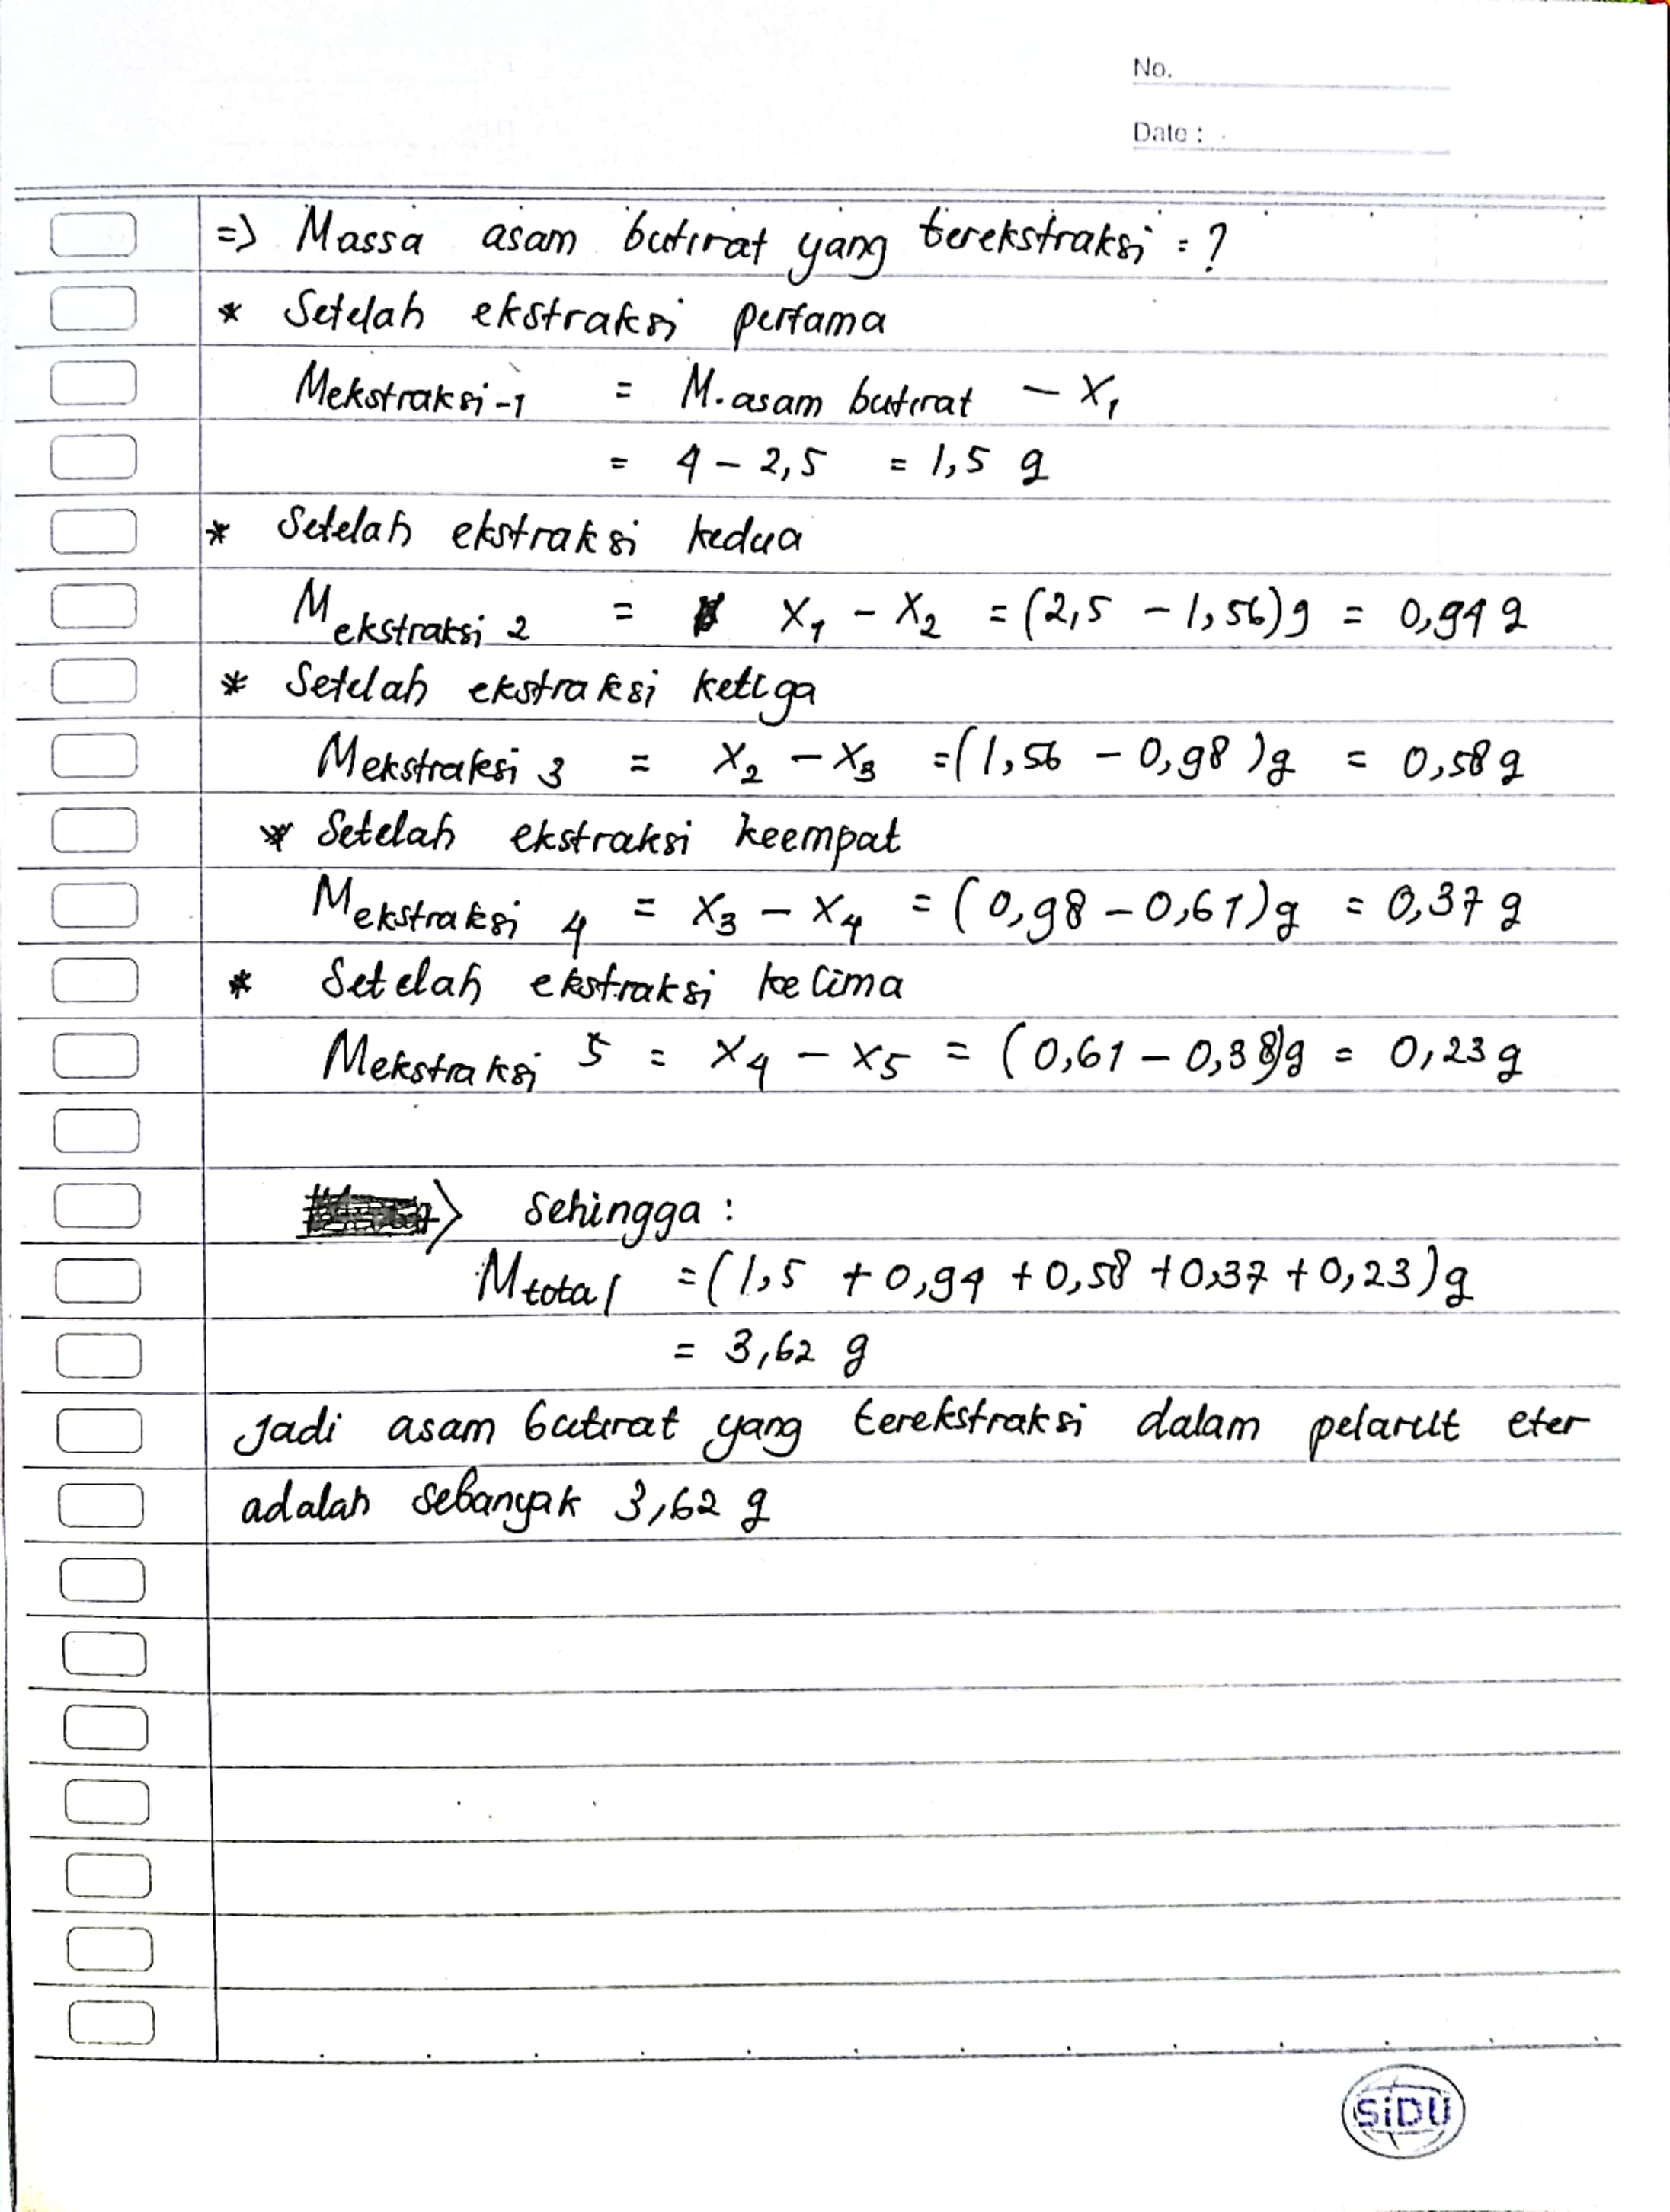 No.
Date :
=> Massa asam butirat yang terekstraksi = ?
* Setelah ekstraksi pertama
Mekstraksi-1 = M.asam butirat - X₁
= 4 - 2,5 = 1,5 g
* Setelah ekstraksi kedua
Mekstraksi 2 = X₁ - X₂ = (2,5 - 1,56)g = 0,94 g
* Setelah ekstraksi ketiga
Mekstraksi 3 = X₂ - X₃ = (1,56 - 0,98)g = 0,58 g
* Setelah ekstraksi keempat
Mekstraksi 4 = X₃ - X₄ = (0,98 - 0,61)g = 0,37 g
* Setelah ekstraksi kelima
Mekstraksi 5 = X₄ - X₅ = (0,61 - 0,38)g = 0,23 g
> Sehingga :
Mtotal = (1,5 + 0,94 + 0,58 + 0,37 + 0,23)g
= 3,62 g
Jadi asam butirat yang terekstraksi dalam pelarut eter
adalah sebanyak 3,62 g
SiDU